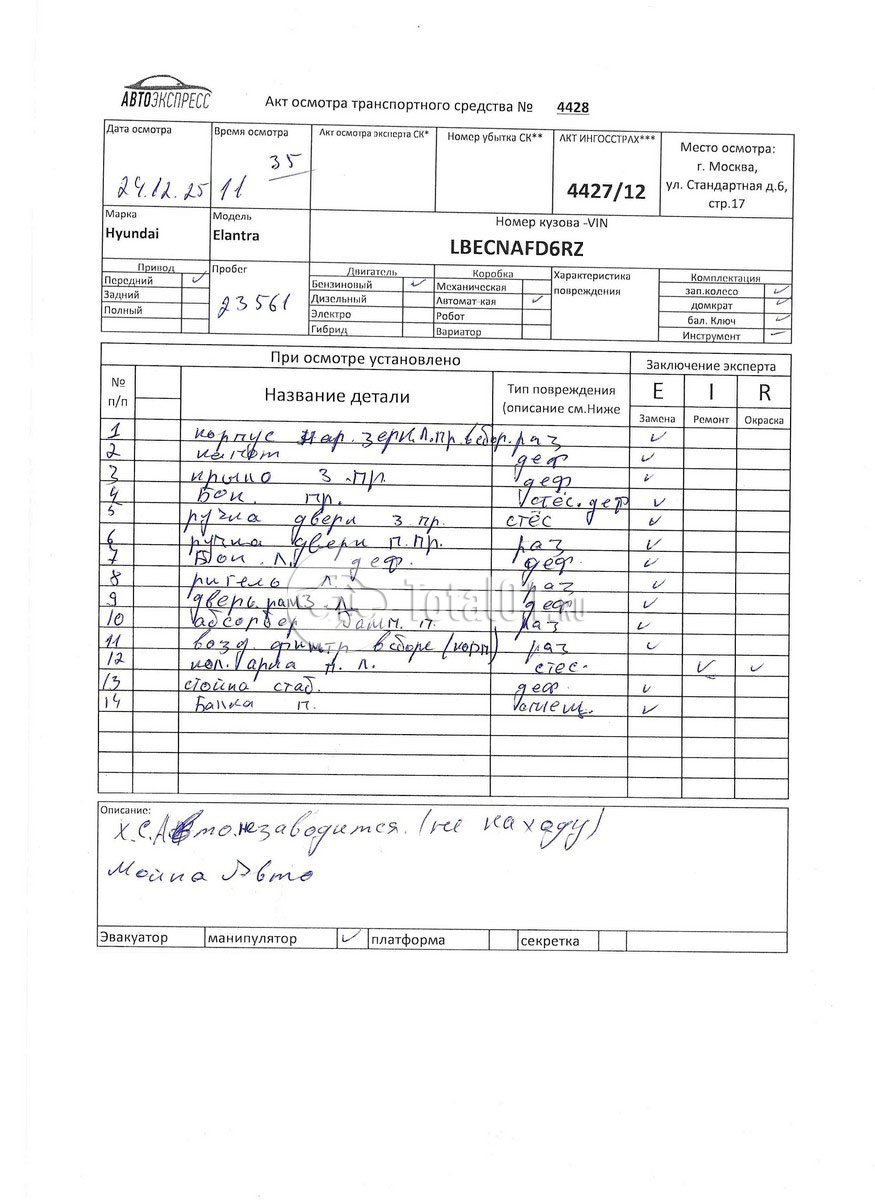 АВТОЭКСПРЕСС
Акт осмотра транспортного средства № 4428
Дата осмотра Время осмотра Акт осмотра эксперта СК* Номер убытка СК** АКТ ИНГОССТРАХ*** Место осмотра:
г. Москва,
ул. Стандартная д.6,
стр.17
24.12.25 11 35 4427/12
Марка Модель Номер кузова -VIN
Hyundai Elantra LBECNAFD6RZ
Привод Пробег Двигатель Коробка Характеристика повреждения Комплектация
Передний ✓ Бензиновый ✓ Механическая зап.колесо ✓
Задний 23561 Дизельный Автомат-кая ✓ домкрат ✓
Полный Электро Робот бал. Ключ ✓
Гибрид Вариатор Инструмент ✓
При осмотре установлено Заключение эксперта
№ п/п Название детали Тип повреждения (описание см.Ниже E I R
Замена Ремонт Окраска
1 корпус нар. зерк. Л. пр. в сбор. раз ✓
2 капот деф ✓
3 крыло З.пр. деф ✓
4 Бок. пр. стёс. деф ✓
5 ручка двери З пр. стёс ✓
6 ручка двери п. пр. раз ✓
7 Бок. Л. деф. деф. ✓
8 ригель л. раз ✓
9 дверь З. Л деф ✓
10 абсорбер бамп. п. раз ✓
11 возд. фильтр в сборе (корп) раз ✓
12 кол. арка п. л. стёс. ✓ ✓
13 стойка стаб. деф. ✓
14 Балка п. смещ. ✓
Описание:
Х.С. Авто не заводится. (не на ходу)
Мойка Авто
Эвакуатор манипулятор ✓ платформа секретка
Total01.ru